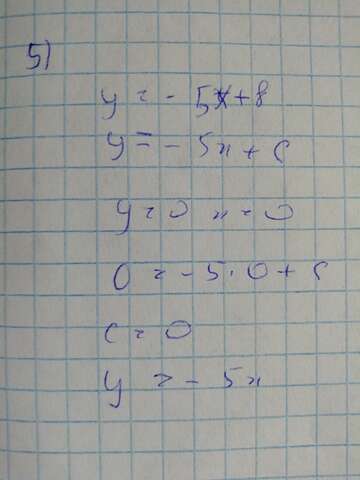 5)
y = - 5x + 8
y = - 5x + c
y = 0 x = 0
0 = - 5 · 0 + c
c = 0
y = - 5x